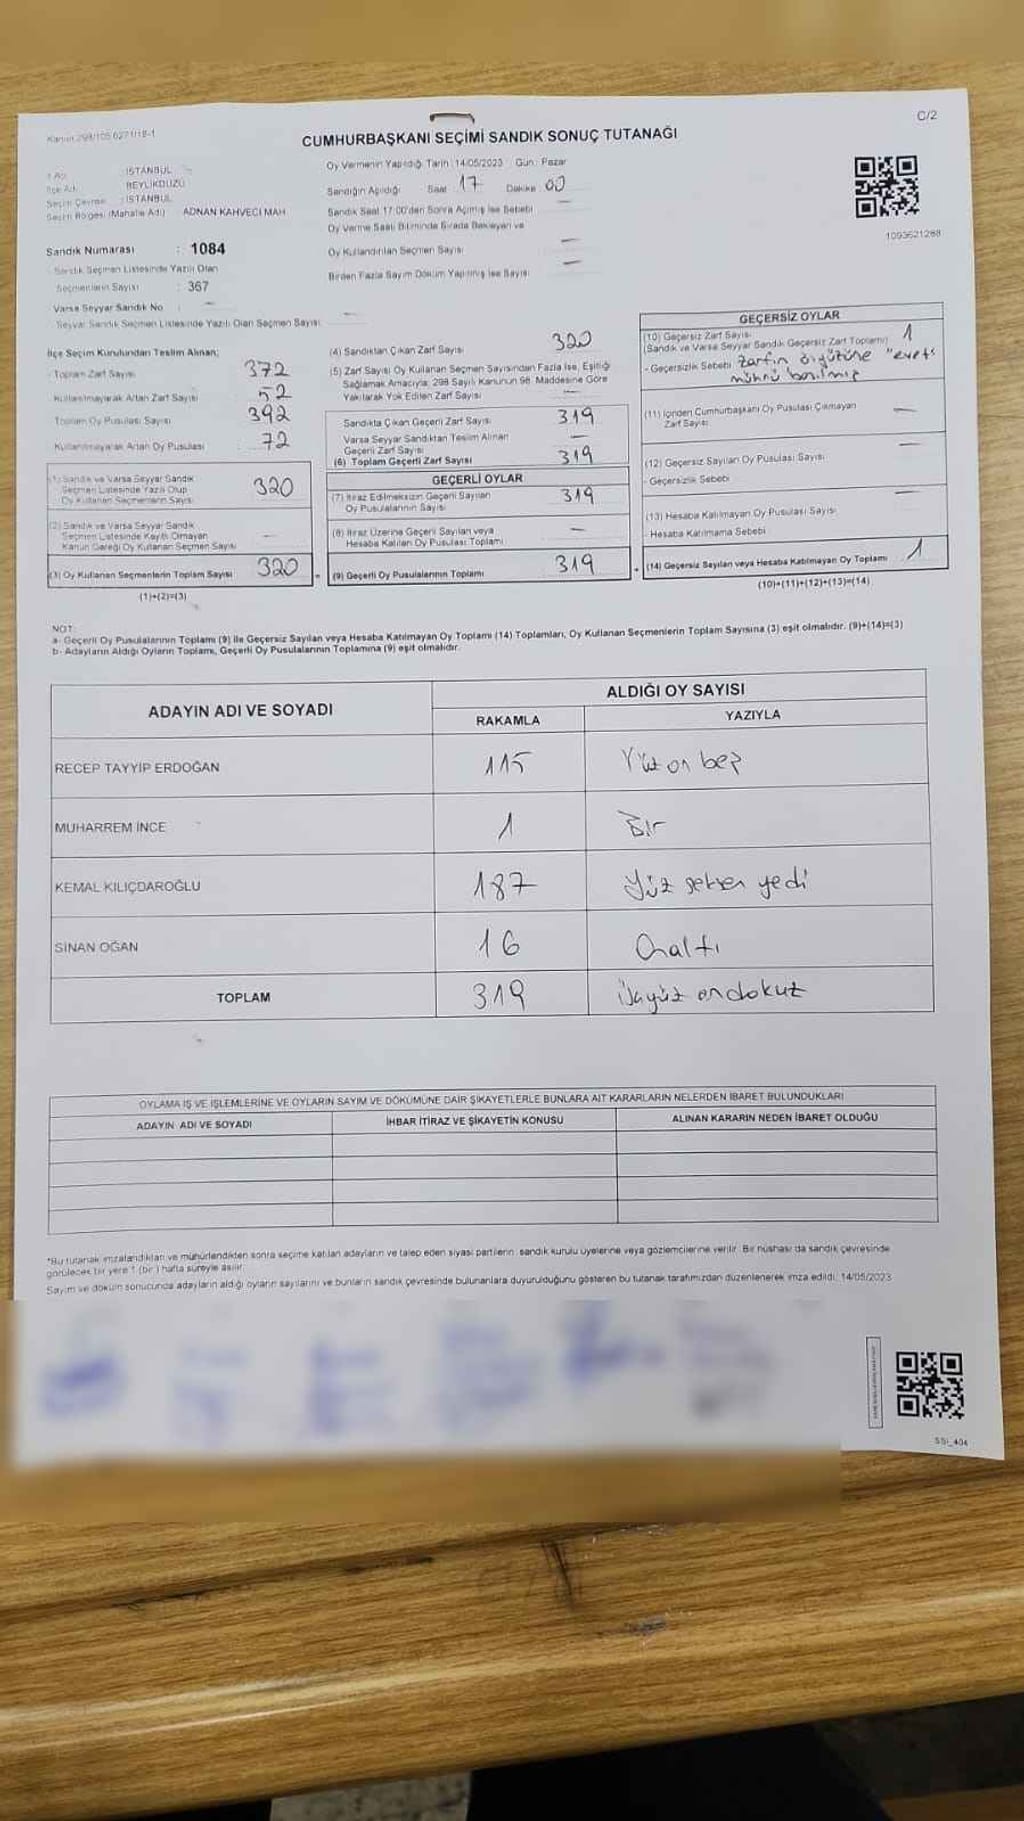 Kanun 298/105 6271/18-1
C/2
CUMHURBAŞKANI SEÇİMİ SANDIK SONUÇ TUTANAĞI
İl Adı : İSTANBUL
İlçe Adı : BEYLİKDÜZÜ
Seçim Çevresi : İSTANBUL
Seçim Bölgesi (Mahalle Adı) ADNAN KAHVECİ MAH
Sandık Numarası : 1084
Sandık Seçmen Listesinde Yazılı Olan
Seçmenlerin Sayısı : 367
Varsa Seyyar Sandık No : —
Seyyar Sandık Seçmen Listesinde Yazılı Olan Seçmen Sayısı : —
Oy Vermenin Yapıldığı Tarih : 14/05/2023 Gün : Pazar
Sandığın Açıldığı Saat : 17 Dakika : 00
Sandık Saat 17:00'den Sonra Açılmış İse Sebebi —
Oy Verme Saati Bitiminde Sırada Bekleyen ve
Oy Kullandırılan Seçmen Sayısı —
Birden Fazla Sayım Döküm Yapılmış İse Sayısı —
1093621288
İlçe Seçim Kurulundan Teslim Alınan;
- Toplam Zarf Sayısı : 372
Kullanılmayarak Artan Zarf Sayısı : 52
Toplam Oy Pusulası Sayısı : 392
Kullanılmayarak Artan Oy Pusulası : 72
(1) Sandık ve Varsa Seyyar Sandık
Seçmen Listesinde Yazılı Olup
Oy Kullanan Seçmenlerin Sayısı 320
(2) Sandık ve Varsa Seyyar Sandık
Seçmen Listesinde Kayıtlı Olmayan
Kanun Gereği Oy Kullanan Seçmen Sayısı —
(3) Oy Kullanan Seçmenlerin Toplam Sayısı 320
(1)+(2)=(3)
(4) Sandıktan Çıkan Zarf Sayısı 320
(5) Zarf Sayısı Oy Kullanan Seçmen Sayısından Fazla İse, Eşitliği
Sağlamak Amacıyla; 298 Sayılı Kanunun 98. Maddesine Göre
Yakılarak Yok Edilen Zarf Sayısı —
Sandıkta Çıkan Geçerli Zarf Sayısı 319
Varsa Seyyar Sandıktan Teslim Alınan
Geçerli Zarf Sayısı —
(6) Toplam Geçerli Zarf Sayısı 319
GEÇERLİ OYLAR
(7) İtiraz Edilmeksizin Geçerli Sayılan
Oy Pusulalarının Sayısı 319
(8) İtiraz Üzerine Geçerli Sayılan veya
Hesaba Katılan Oy Pusulası Toplamı —
(9) Geçerli Oy Pusulalarının Toplamı 319
GEÇERSİZ OYLAR
(10) Geçersiz Zarf Sayısı
(Sandık ve Varsa Seyyar Sandık Geçersiz Zarf Toplamı) 1
- Geçersizlik Sebebi Zarfın ölyüzüne "evet"
mührü basılmış
(11) İçinden Cumhurbaşkanı Oy Pusulası Çıkmayan
Zarf Sayısı —
(12) Geçersiz Sayılan Oy Pusulası Sayısı —
- Geçersizlik Sebebi
(13) Hesaba Katılmayan Oy Pusulası Sayısı —
- Hesaba Katılmama Sebebi
(14) Geçersiz Sayılan veya Hesaba Katılmayan Oy Toplamı 1
(10)+(11)+(12)+(13)=(14)
NOT:
a- Geçerli Oy Pusulalarının Toplamı (9) ile Geçersiz Sayılan veya Hesaba Katılmayan Oy Toplamı (14) Toplamları, Oy Kullanan Seçmenlerin Toplam Sayısına (3) eşit olmalıdır. (9)+(14)=(3)
b- Adayların Aldığı Oyların Toplamı, Geçerli Oy Pusulalarının Toplamına (9) eşit olmalıdır.
ADAYIN ADI VE SOYADI ALDIĞI OY SAYISI
RAKAMLA YAZIYLA
RECEP TAYYİP ERDOĞAN 115 Yüz on beş
MUHARREM İNCE 1 Bir
KEMAL KILIÇDAROĞLU 187 Yüz seksen yedi
SİNAN OĞAN 16 Onaltı
TOPLAM 319 Üçyüz ondokuz
OYLAMA İŞ VE İŞLEMLERİNE VE OYLARIN SAYIM VE DÖKÜMÜNE DAİR ŞİKAYETLERLE BUNLARA AİT KARARLARIN NELERDEN İBARET BULUNDUKLARI
ADAYIN ADI VE SOYADI İHBAR İTİRAZ VE ŞİKAYETİN KONUSU ALINAN KARARIN NEDEN İBARET OLDUĞU
*Bu tutanak imzalandıktan ve mühürlendikten sonra seçime katılan adayların ve talep eden siyasi partilerin, sandık kurulu üyelerine veya gözlemcilerine verilir. Bir nüshası da sandık çevresinde
görülecek bir yere 1 (bir) hafta süreyle asılır.
Sayım ve döküm sonucunda adayların aldığı oyların sayılarını ve bunların sandık çevresinde bulunanlara duyurulduğunu gösteren bu tutanak tarafımızdan düzenlenerek imza edildi. 14/05/2023
SSI_404